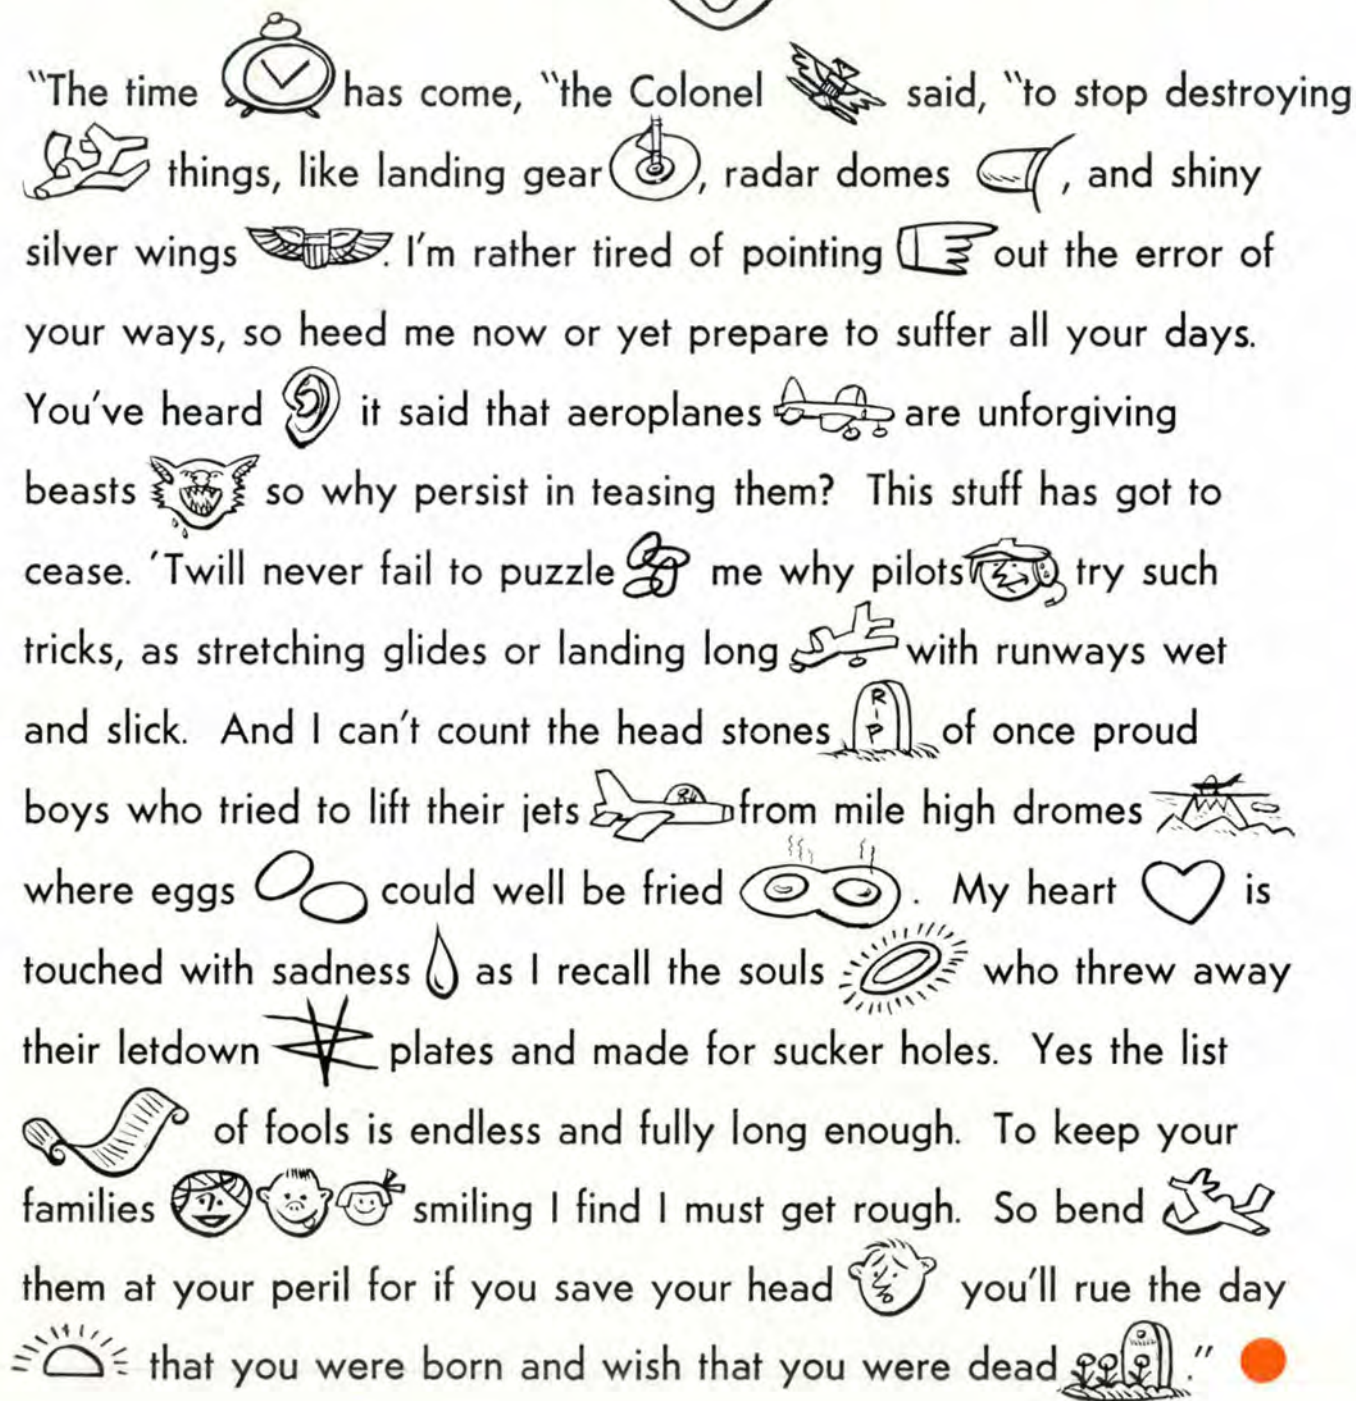 "The time has come, "the Colonel said, "to stop destroying
things, like landing gear, radar domes, and shiny
silver wings. I'm rather tired of pointing out the error of
your ways, so heed me now or yet prepare to suffer all your days.
You've heard it said that aeroplanes are unforgiving
beasts so why persist in teasing them? This stuff has got to
cease. 'Twill never fail to puzzle me why pilots try such
tricks, as stretching glides or landing long with runways wet
and slick. And I can't count the head stones R I P of once proud
boys who tried to lift their jets from mile high dromes
where eggs could well be fried. My heart is
touched with sadness as I recall the souls who threw away
their letdown plates and made for sucker holes. Yes the list
of fools is endless and fully long enough. To keep your
families smiling I find I must get rough. So bend
them at your peril for if you save your head you'll rue the day
that you were born and wish that you were dead."